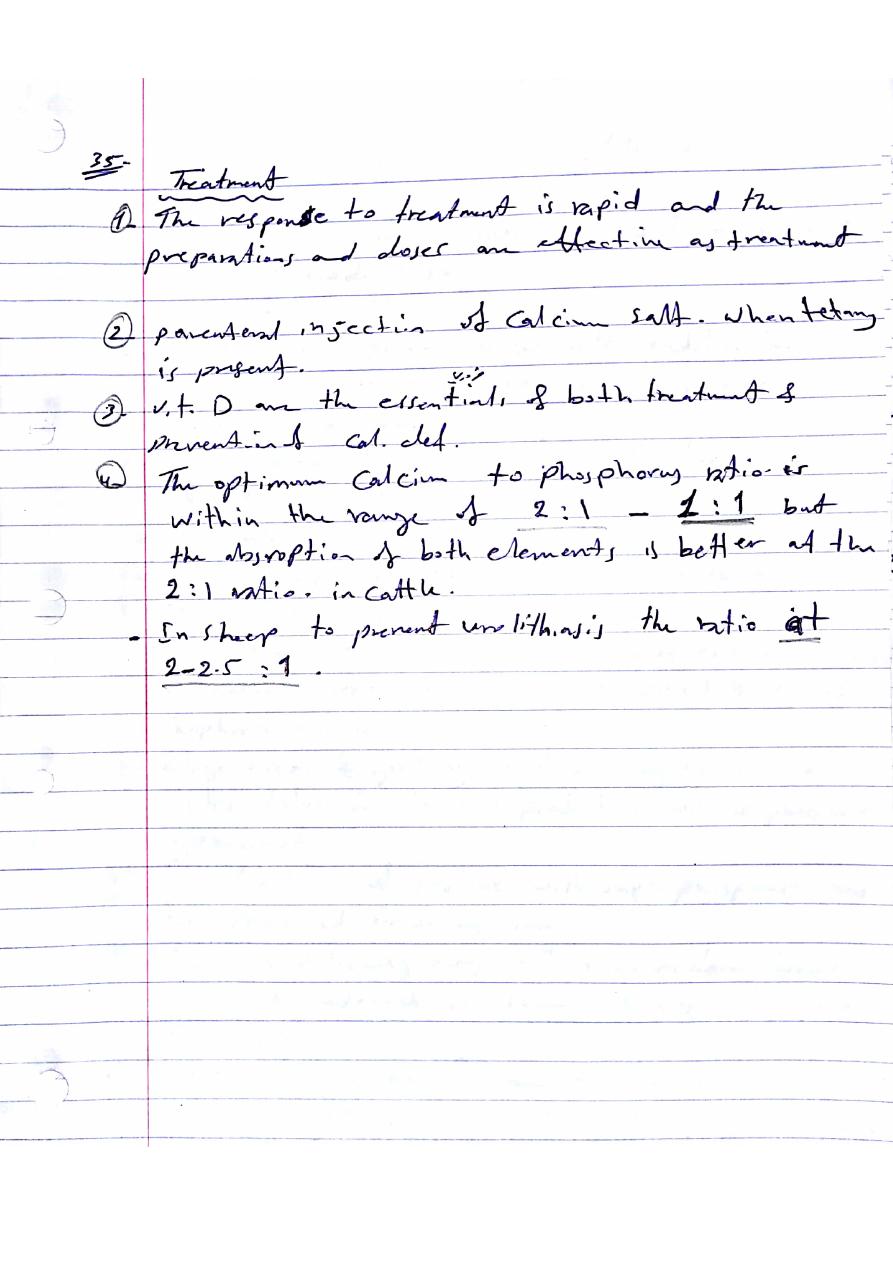 35-
Treatment
① The response to treatment is rapid and the
preparations and doses are effective as treatment
② parenteral injection of Calcium salt. when tetany
is present.
③ vit. D are the essentials of both treatment &
prevent.in of cal. def.
④ The optimum Calcium to phosphorus ratio is
within the range of 2:1 - 1:1 but
the absroption of both elements is better at the
2:1 ratio. in cattle.
- In sheep to prevent urolithiasis the ratio at
2-2.5 : 1 .